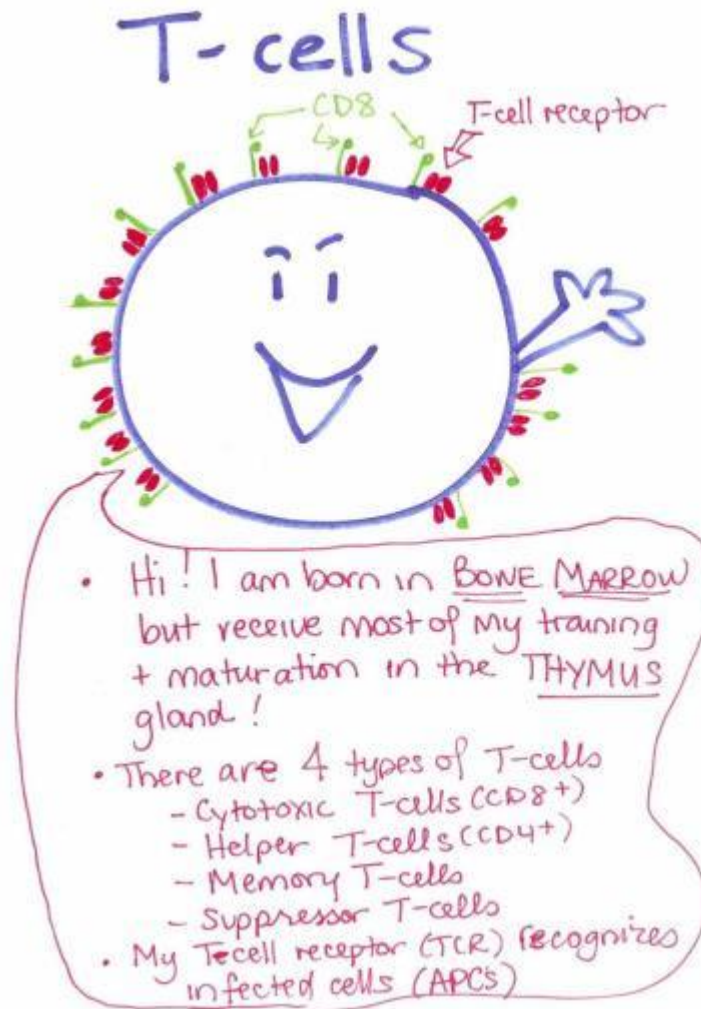 T-cells
CD8
T-cell receptor
• Hi! I am born in BONE MARROW
but receive most of my training
+ maturation in the THYMUS
gland!
• There are 4 types of T-cells
- Cytotoxic T-cells (CD8+)
- Helper T-cells (CD4+)
- Memory T-cells
- Suppressor T-cells
• My T-cell receptor (TCR) recognizes
infected cells (APC's)